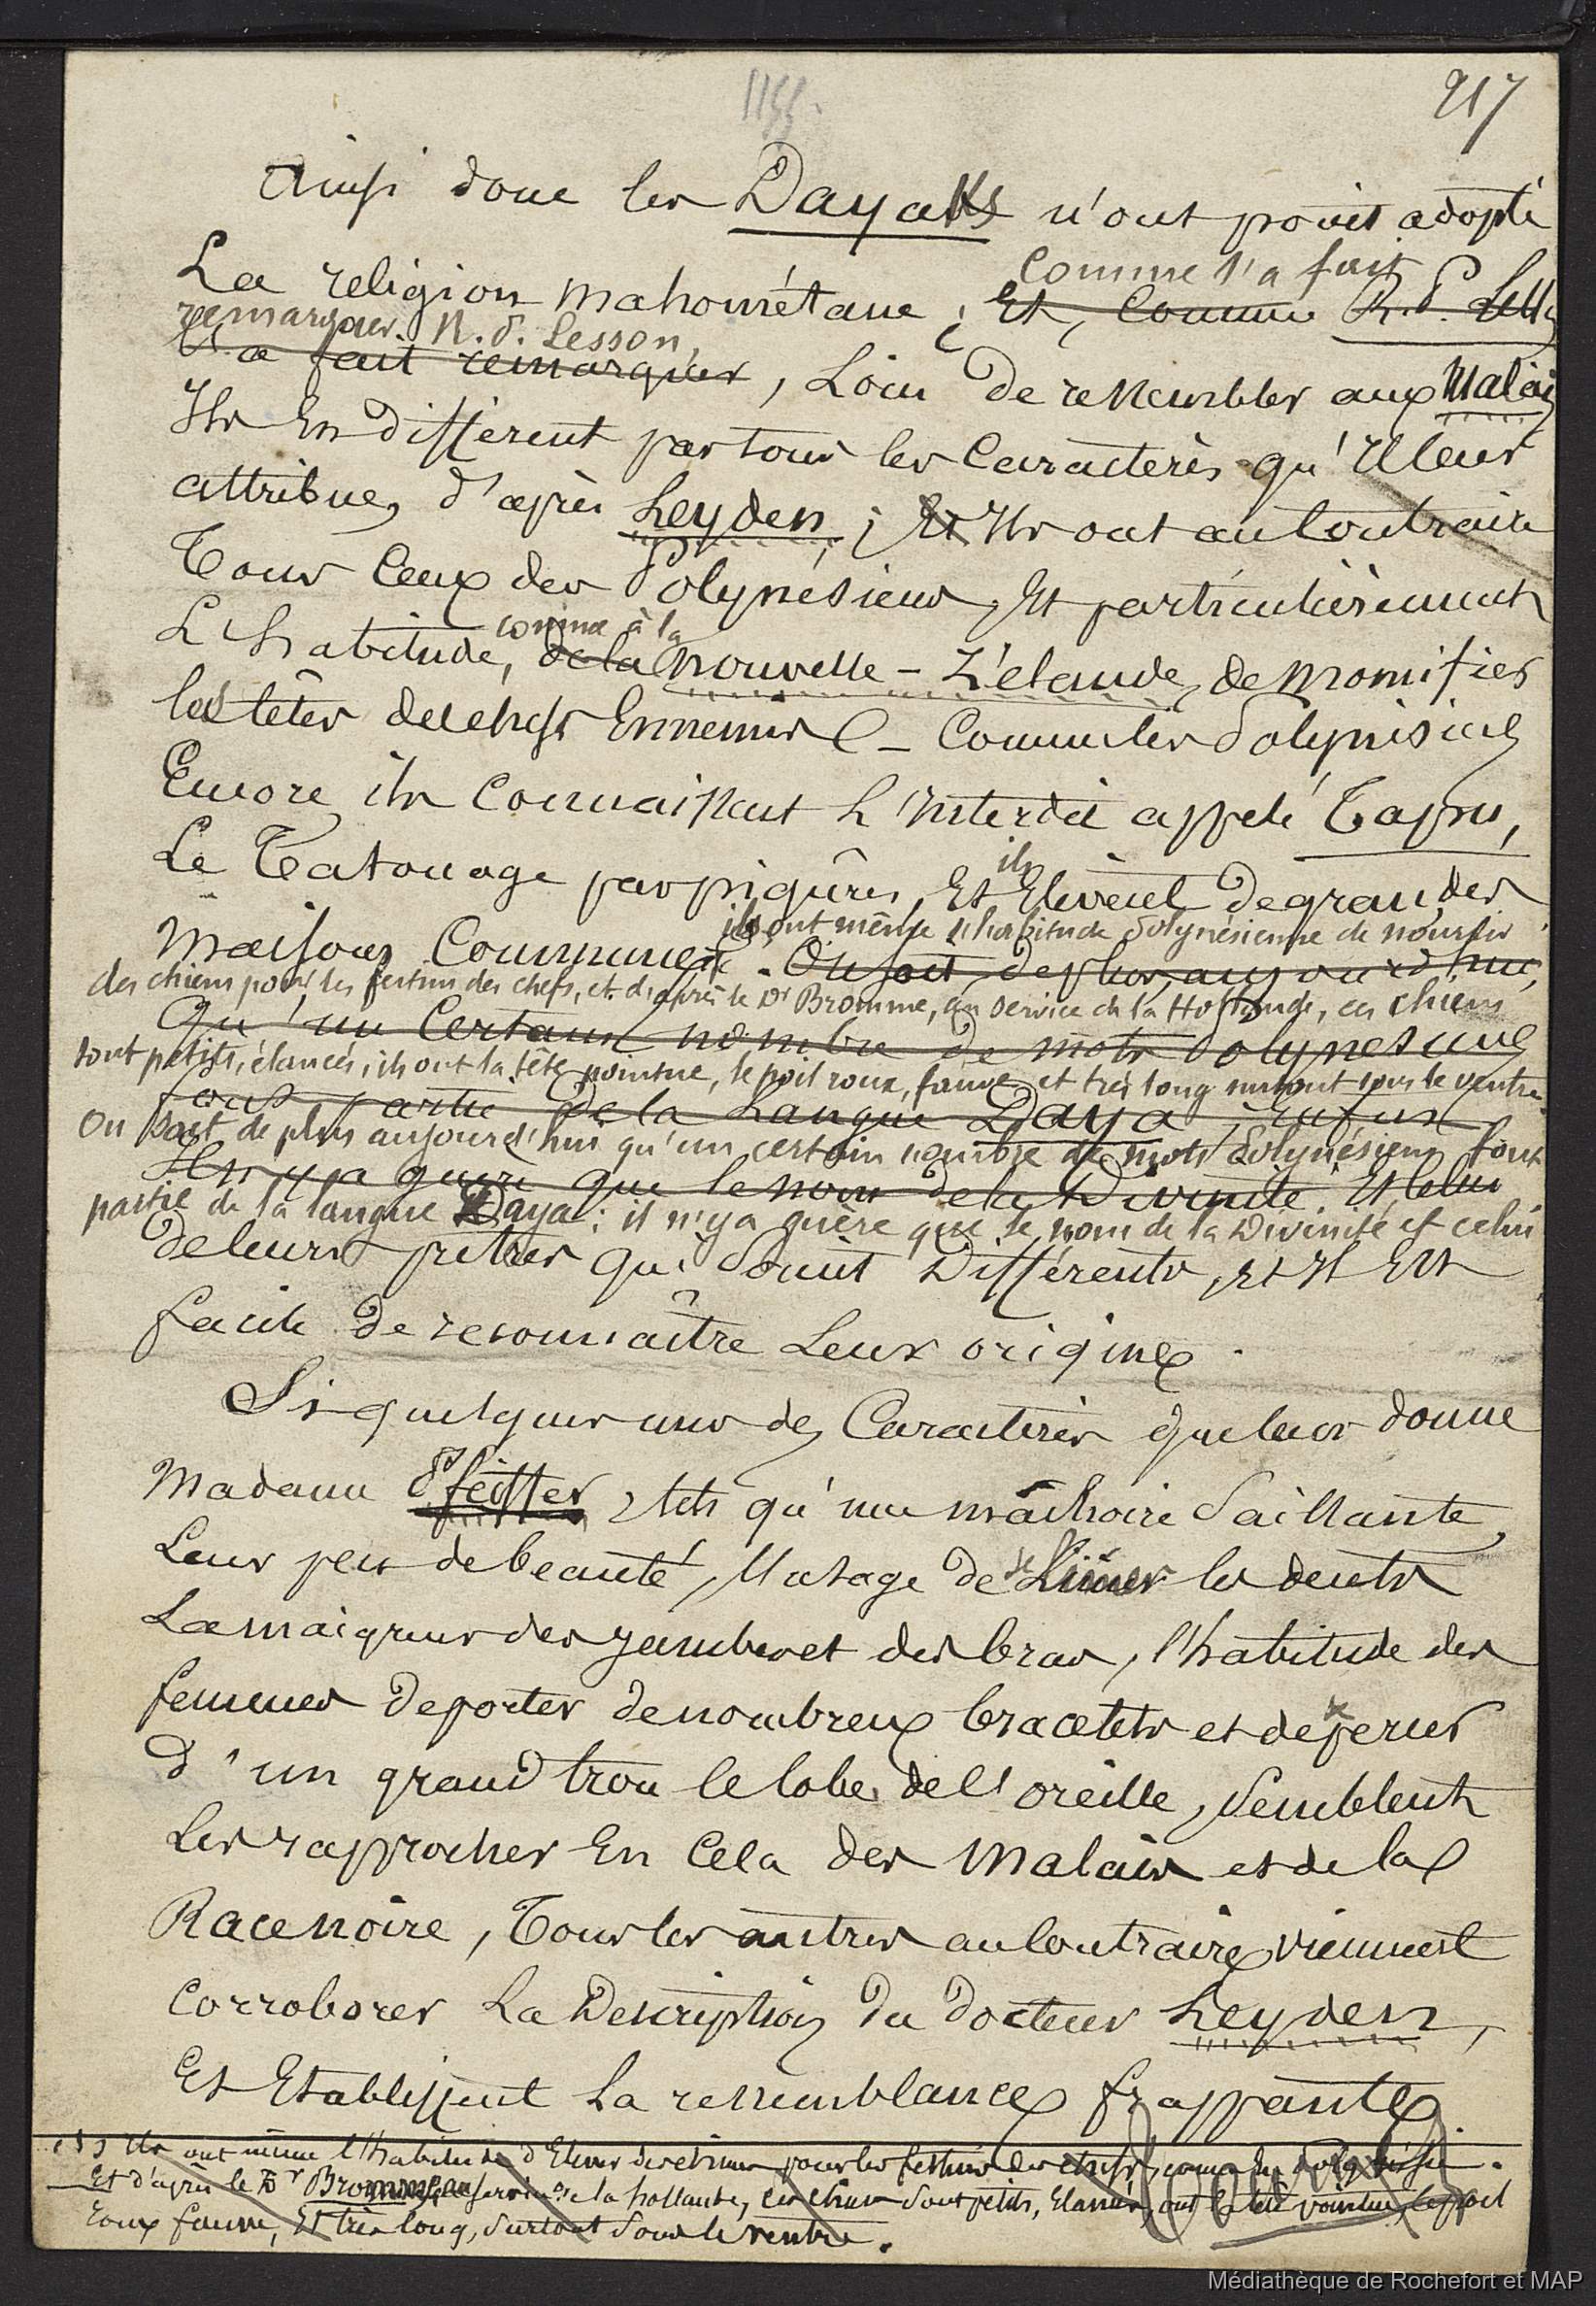 1155.
217
Ainsi donc les Dayaks n'ont point adopté
comme l'a fait
La religion mahométane ; Et, comme R. P. Less
remarquer R. P. Lesson,
l'a fait remarquer, Loin de ressembler aux Malais
Ils En diffèrent par tous les Caractères qu'Il leur
attribue, d'après Leyden ; Et Ils ont au Contraire
Tous Ceux des Polynésiens, Et particulièrement
comme à la
L'habitude, de la nouvelle-Zélande, de momifier
les têtes de chefs Ennemis - Comme les Polynésiens
Encore ils Connaissent L'Interdit appelé Tapu,
ils
Le Tatouage par piqûres, Et Elèvent de grandes
ils ont même l'habitude Polynésienne de nourrir
Maisons Communes. On sait, de plus, aujourd'hui,
des chiens pour les festins des chefs, et d'après le Dr Bromme, au service de la Hollande, ces chiens
Qu'un Certain nombre de mots Polynésiens
sont petits, élancés, ils ont la tête pointue, le poil roux, fauve et très long surtout sous le ventre.
font partie de la Langue Daya ; enfin
On sait de plus aujourd'hui qu'un certain nombre de mots Polynésiens font
Il n'y a guère que le nom de la Divinité Et Celui
partie de la langue Daya : il n'y a guère que le nom de la Divinité et celui
de leurs prêtres qui Soient Différents, Et Il Est
facile de reconnaître Leur origine.
Si quelques uns des Caractères que leur donne
Madame Pfeiffer, tels qu'une mâchoire Saillante,
se
Leur peu de beauté, l'usage de Limer les dents
La maigreur des jambes et des bras, l'habitude des
femmes de porter de nombreux bracelets et de percer
d'un grand trou le lobe de l'oreille, Semblent
Les rapprocher En Cela des Malais et de la
Race noire, Tous les autres au Contraire viennent
Corroborer La Description du Docteur Leyden,
Et Etablissent La ressemblance frappante
Ils ont même l'habitude d'Elever des chiens pour les festins des chefs, comme les Polynésiens.
Et d'après le Dr Bromme, au service de la hollande, ces chiens Sont petits, Elancés, ont la tête pointue, le poil
roux fauve, Et très long, Surtout Sous le ventre.
Médiathèque de Rochefort et MAP